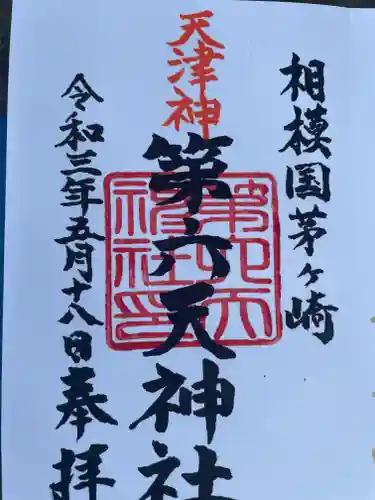 相模国茅ヶ崎
天津神
第六天神社
令和三年五月十八日奉拝
第六天神社印